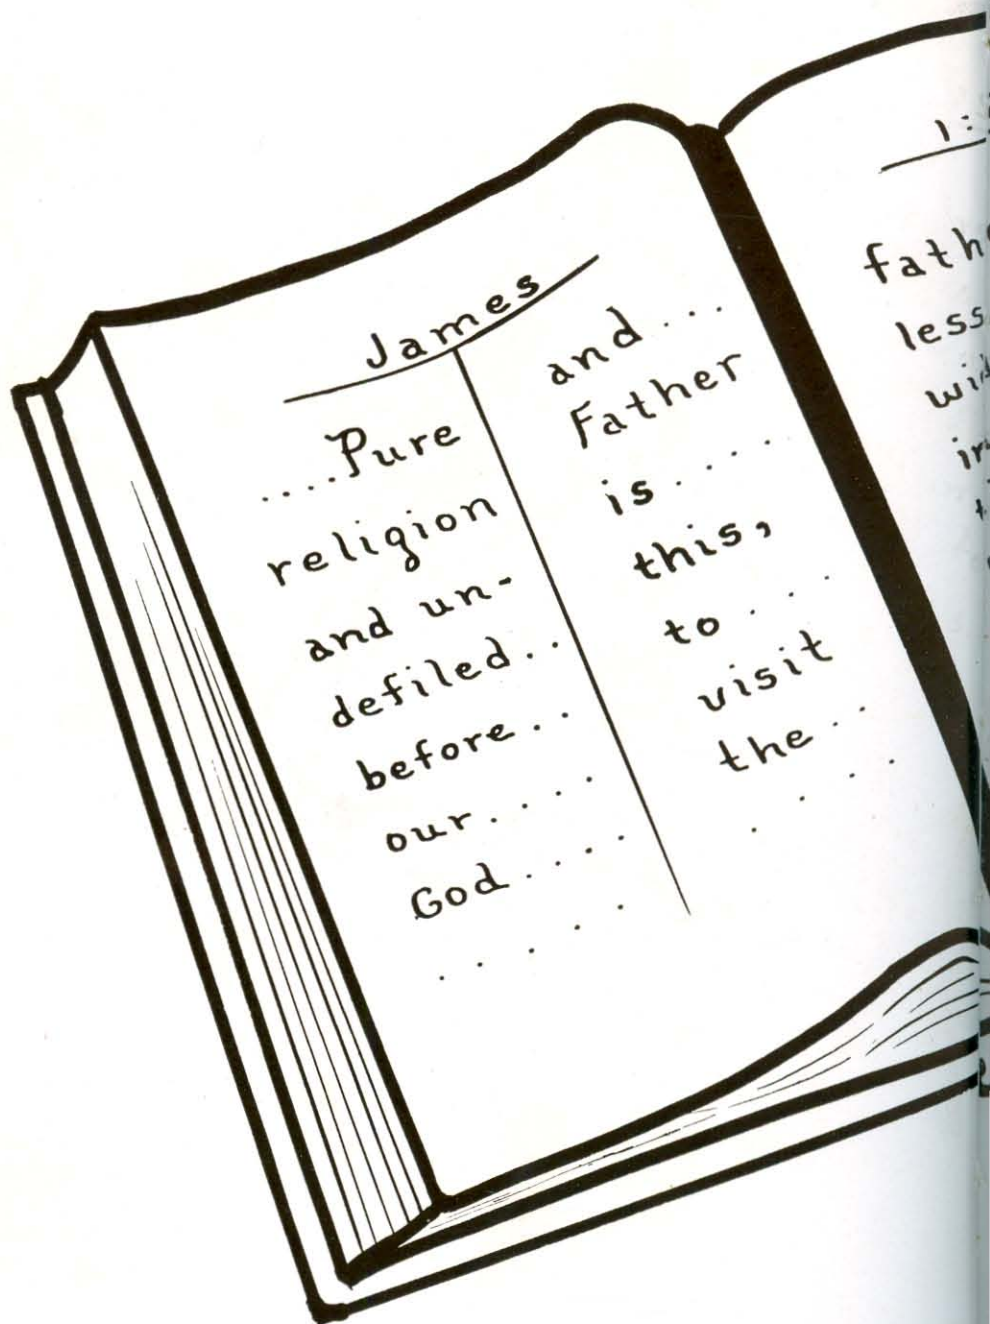 James
....Pure
religion
and un-
defiled..
before..
our....
God....
.....
and....
Father
is....
this,
to...
visit
the..
....
1:
fath
less